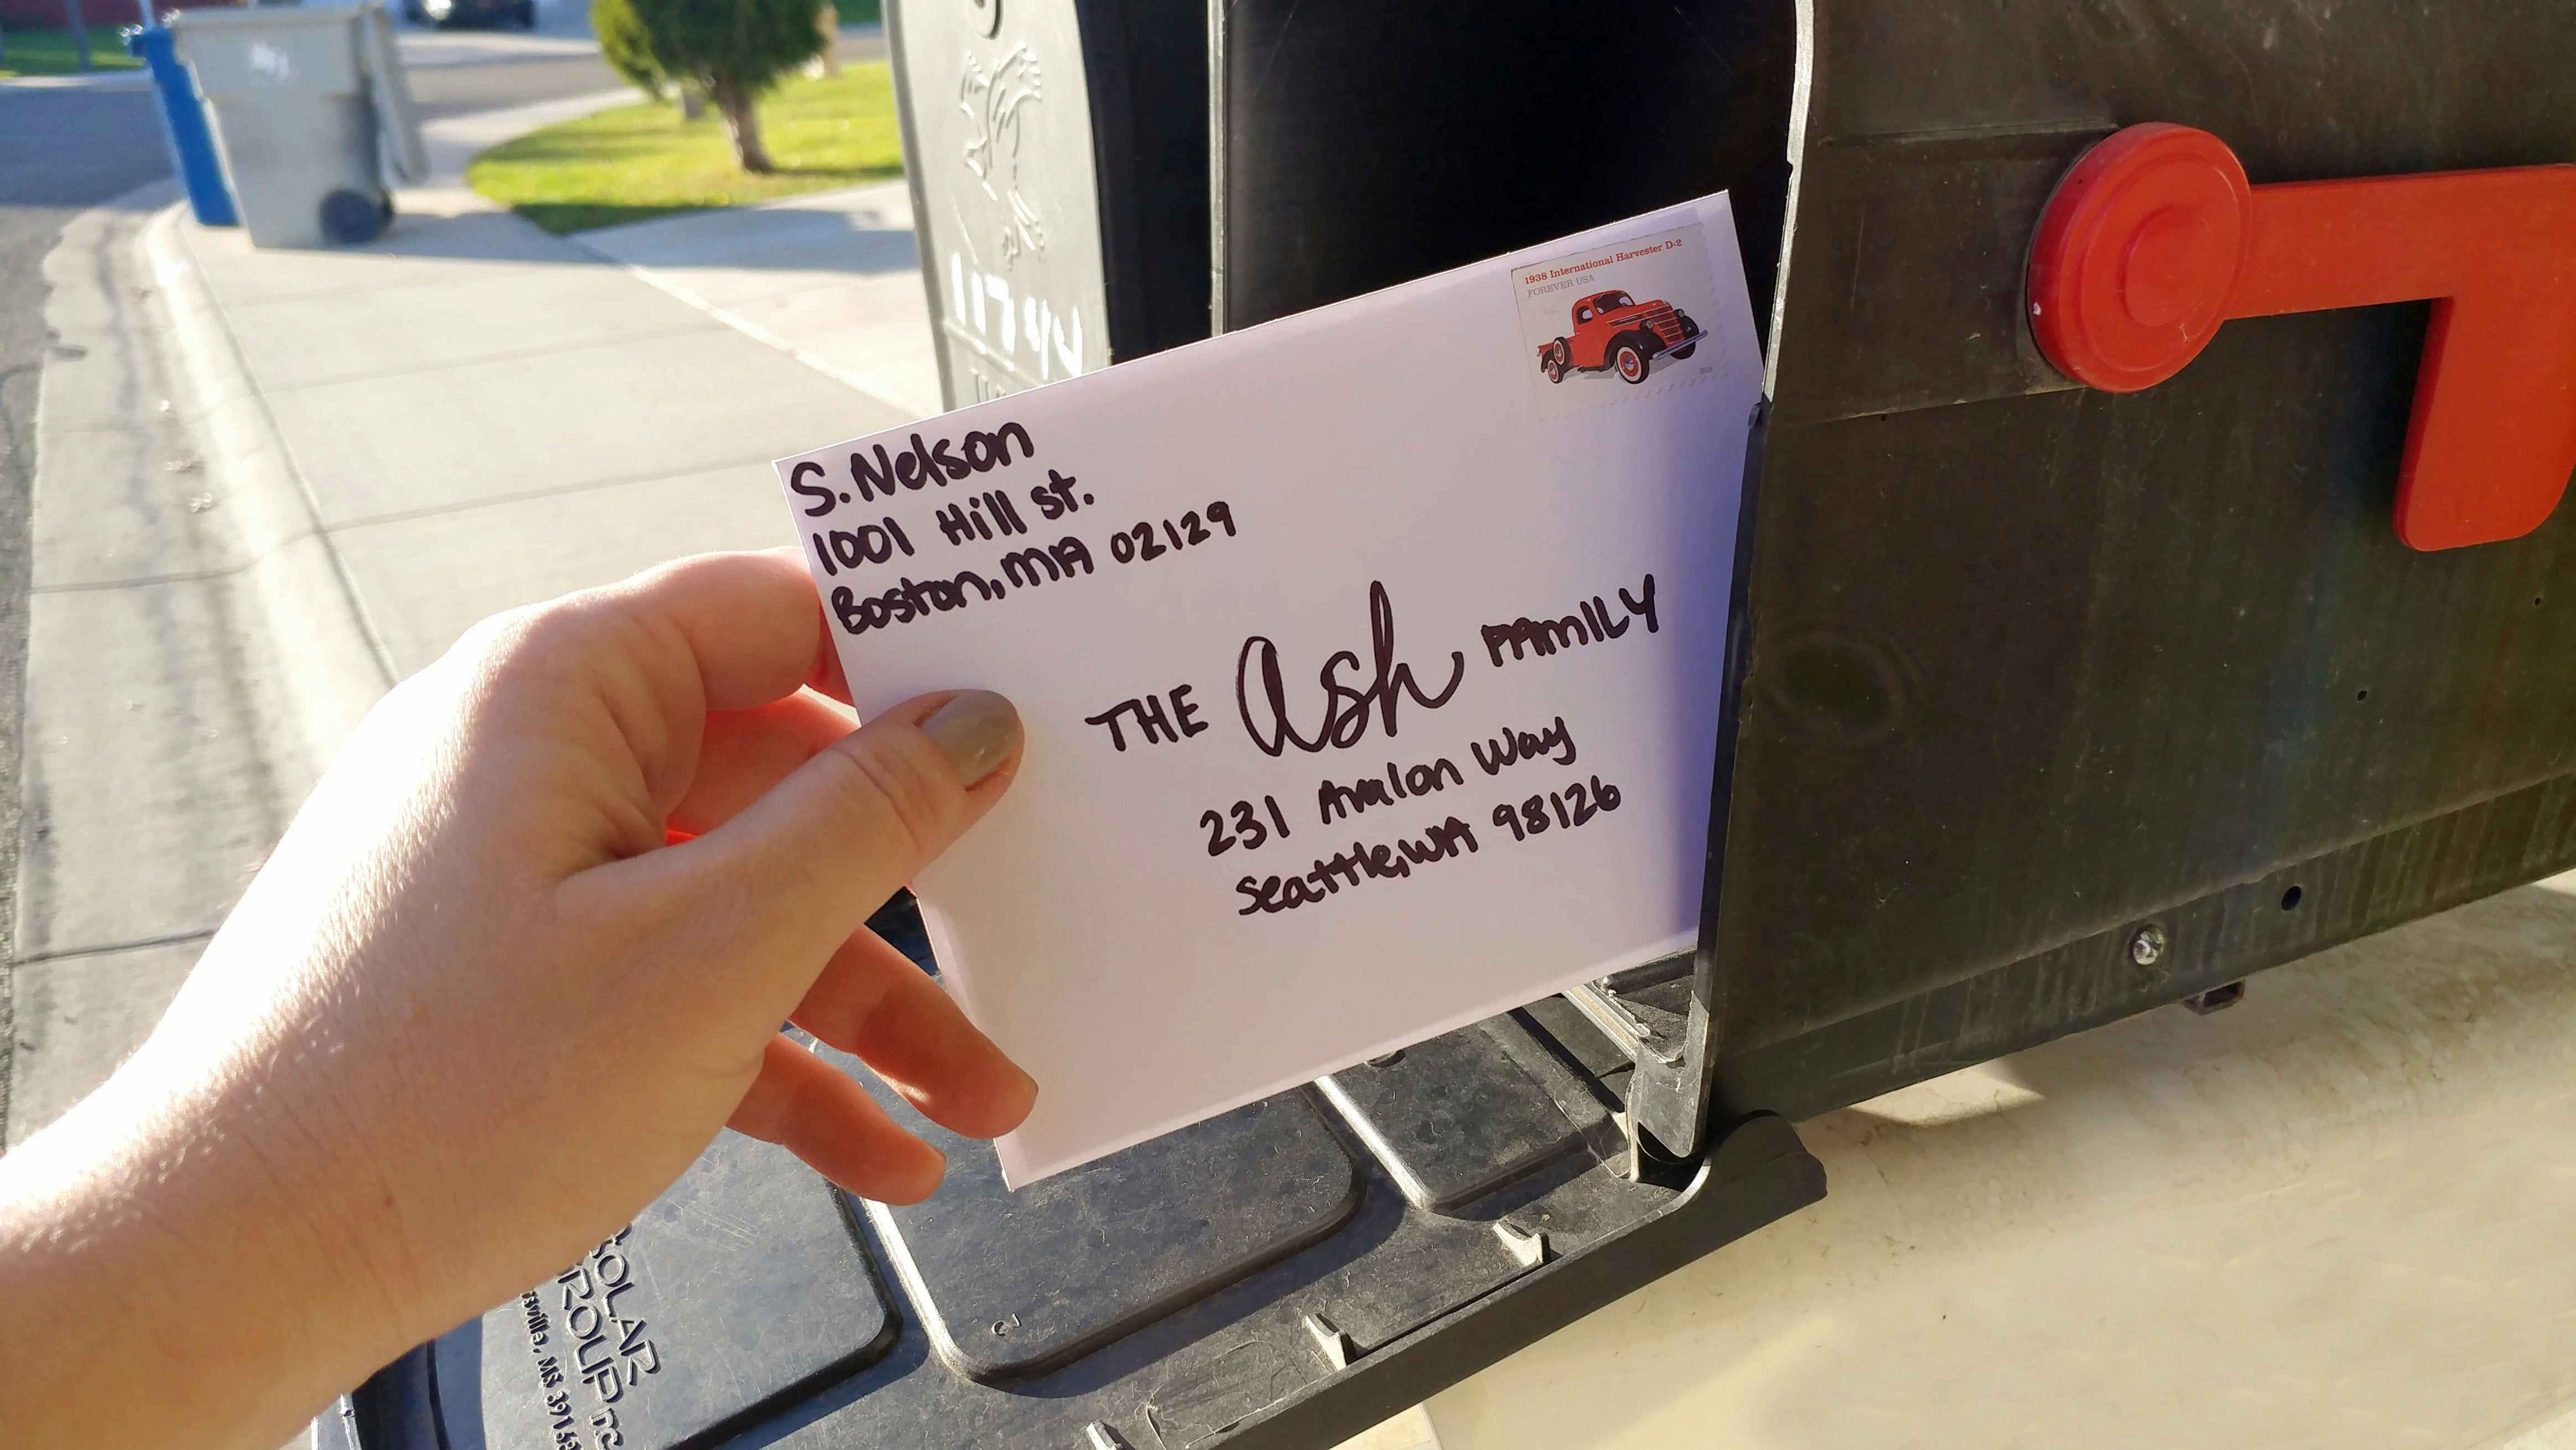 1938 International Harvester D-2
FOREVER USA
S. Nelson
1001 Hill st.
Boston, MA 02129
THE ash FAMILY
231 Avalon Way
Seattle, WA 98126
SOLAR
GROUP